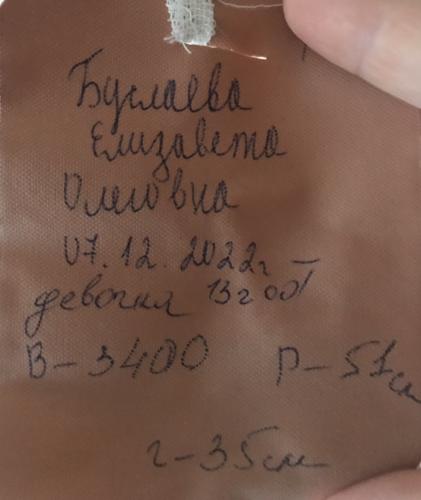 Буглаева
Елизавета
Олеговна
07.12.2022г
девочка 13г00т
В-3400 Р-51см
г-35см